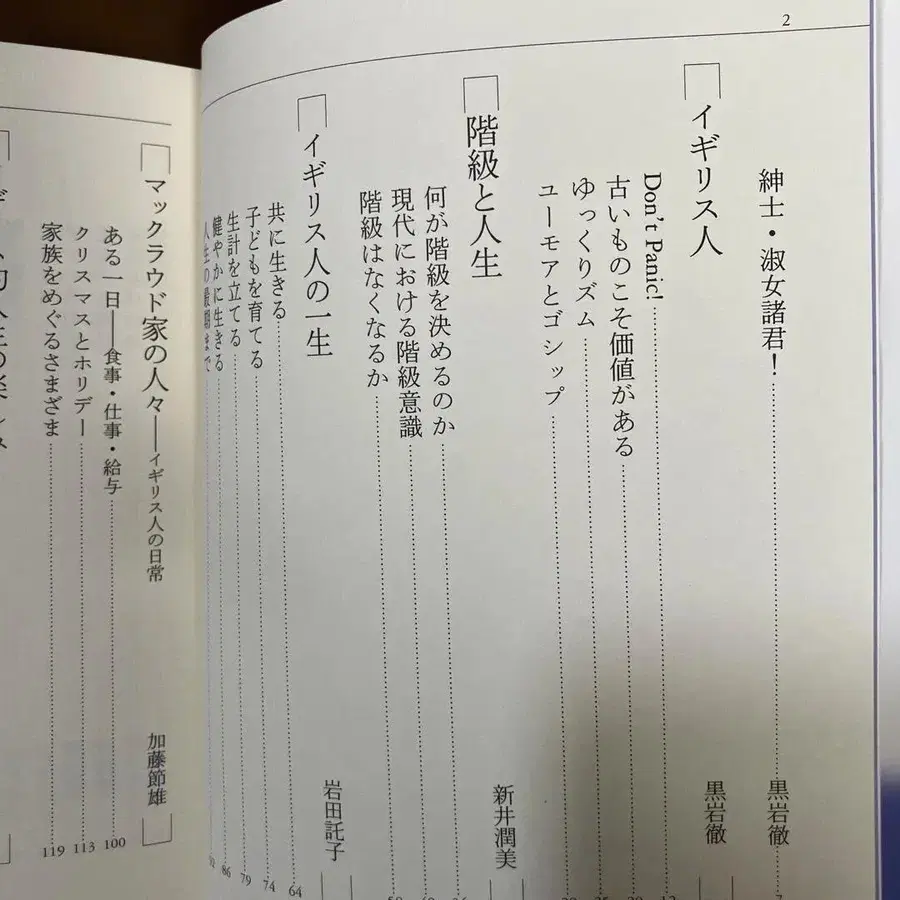 2
紳士・淑女諸君！ 黒岩徹 7
イギリス人 黒岩徹
Don't Panic! 12
古いものこそ価値がある
ゆっくりズム
ユーモアとゴシップ
階級と人生 新井潤美
何が階級を決めるのか
現代における階級意識
階級はなくなるか
イギリス人の一生 岩田託子
共に生きる 64
子どもを育てる 74
生計を立てる 79
健やかに生きる 86
人生の最期まで
マックラウド家の人々──イギリス人の日常 加藤節雄
ある一日──食事・仕事・給与 100
クリスマスとホリデー 113
家族をめぐるさまざま 119